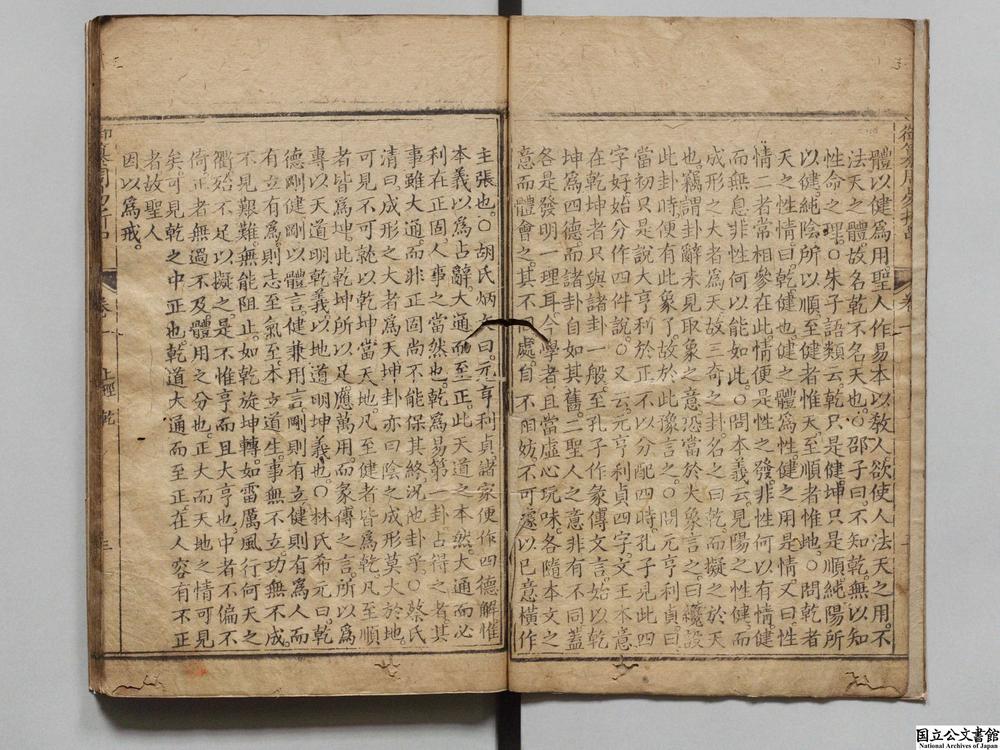 體以健爲用聖人作易本以敎人欲使人法天之用。不
法天之體。故名乾不名天也。○邵子曰不知乾。無以知
性命之理。○朱子語類云乾只是健坤只是順純陽所
以健純陰所以順至健者惟天至順者惟地。○問乾者
天之性情曰。乾健也。健之體爲性健之用是情又曰。性
情二者常相參在此。情便是性之發。非性何以有情健
而無息非性何以能如此。○問本義云。見陽之性健而
成形之大者爲天故三奇之卦名之曰乾。而擬之於天
也竊謂卦辭未見取象之意恐當於大象言之。曰纔設
此卦時便有此象了。故於此豫言之。○問元亨利貞曰
當初只是說大亨利於正不以分配四時孔子見此四
字好始分作四件說。○又云元亨利貞四字文王本意
在乾坤者只與諸卦一般。至孔子作彖傳文言。始以乾
坤爲四德。而諸卦自如其舊。二聖人之意非有不同蓋
各是發明一理耳。今學者且當虛心玩味各隨本文之
意而體會之。其不同處自不相妨不可遽以己意橫作
主張也。○胡氏炳文曰。元亨利貞諸家便作四德解惟
本義以爲占辭。大通而至正。此天道之本然。大通而必
利在正固。人事之當然也。乾爲易第一卦占得之者其
事雖大通。而非正固尚不能保其終況他卦乎○蔡氏
清曰。成形之大者爲天坤卦亦曰陰之成形莫大於地
可見不可就以乾坤當天地凡至健者皆爲乾。凡至順
者皆爲坤。此乾坤所以足應萬用。而彖傳之言。所以爲
專以天道明乾義以地道明坤義也。○林氏希元曰。乾
德剛健。剛以體言。健兼用言。剛則有立健則有爲人而
有立有爲。則志至氣至本立道生。事無不立功無不成。
不見艱難。無能阻止。如乾旋坤轉。如雷厲風行。何天之
衢。殆不足以擬之。是不惟亨而且大亨也。中者不偏不
倚。正者無過不及體用之分也。正大而天地之情可見
矣。可見乾之中正也乾道大通而至正在人容有不正
者故聖人
因以爲戒。
卷一
上經 乾
三
国立公文書館
National Archives of Japan